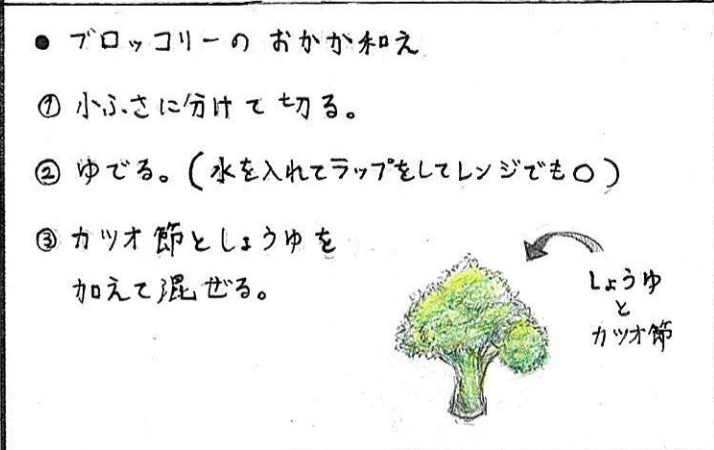 ● ブロッコリーの おかか和え
① 小ふさに分けて切る。
② ゆでる。(水を入れてラップをしてレンジでも○)
③ カツオ節としょうゆを
加えて混ぜる。
しょうゆ
と
カツオ節